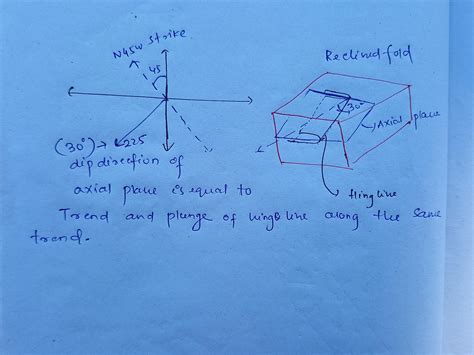 N45W strike
45
(30°) → 225
dip direction of
axial plane is equal to
Trend and plunge of hinge line along the same
trend.
Reclined fold
30°
Axial plane
Hing line